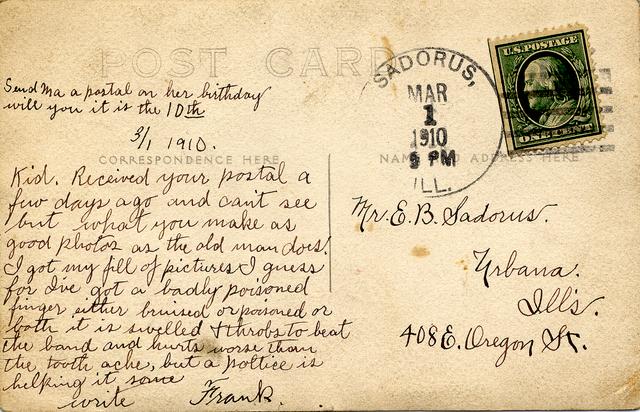 POST CARD
Send Ma a postal on her birthday
will you it is the 10th
3/1 1910.
CORRESPONDENCE HERE
Kid. Received your postal a
few days ago and can't see
but what you make as
good photos as the old man does!
I got my fill of pictures I guess
for I've got a badly poisoned
finger either bruised or poisoned or
both it is swelled & throbs to beat
the band and hurts worse than
the tooth ache, but a poltice is
helping it some
write Frank.
SADORUS,
MAR
1
1910
9 PM
ILL.
U.S. POSTAGE
ONE CENT
NAME AND ADDRESS HERE
Mr. E. B. Sadorus.
Urbana.
Ills.
408 E. Oregon St.